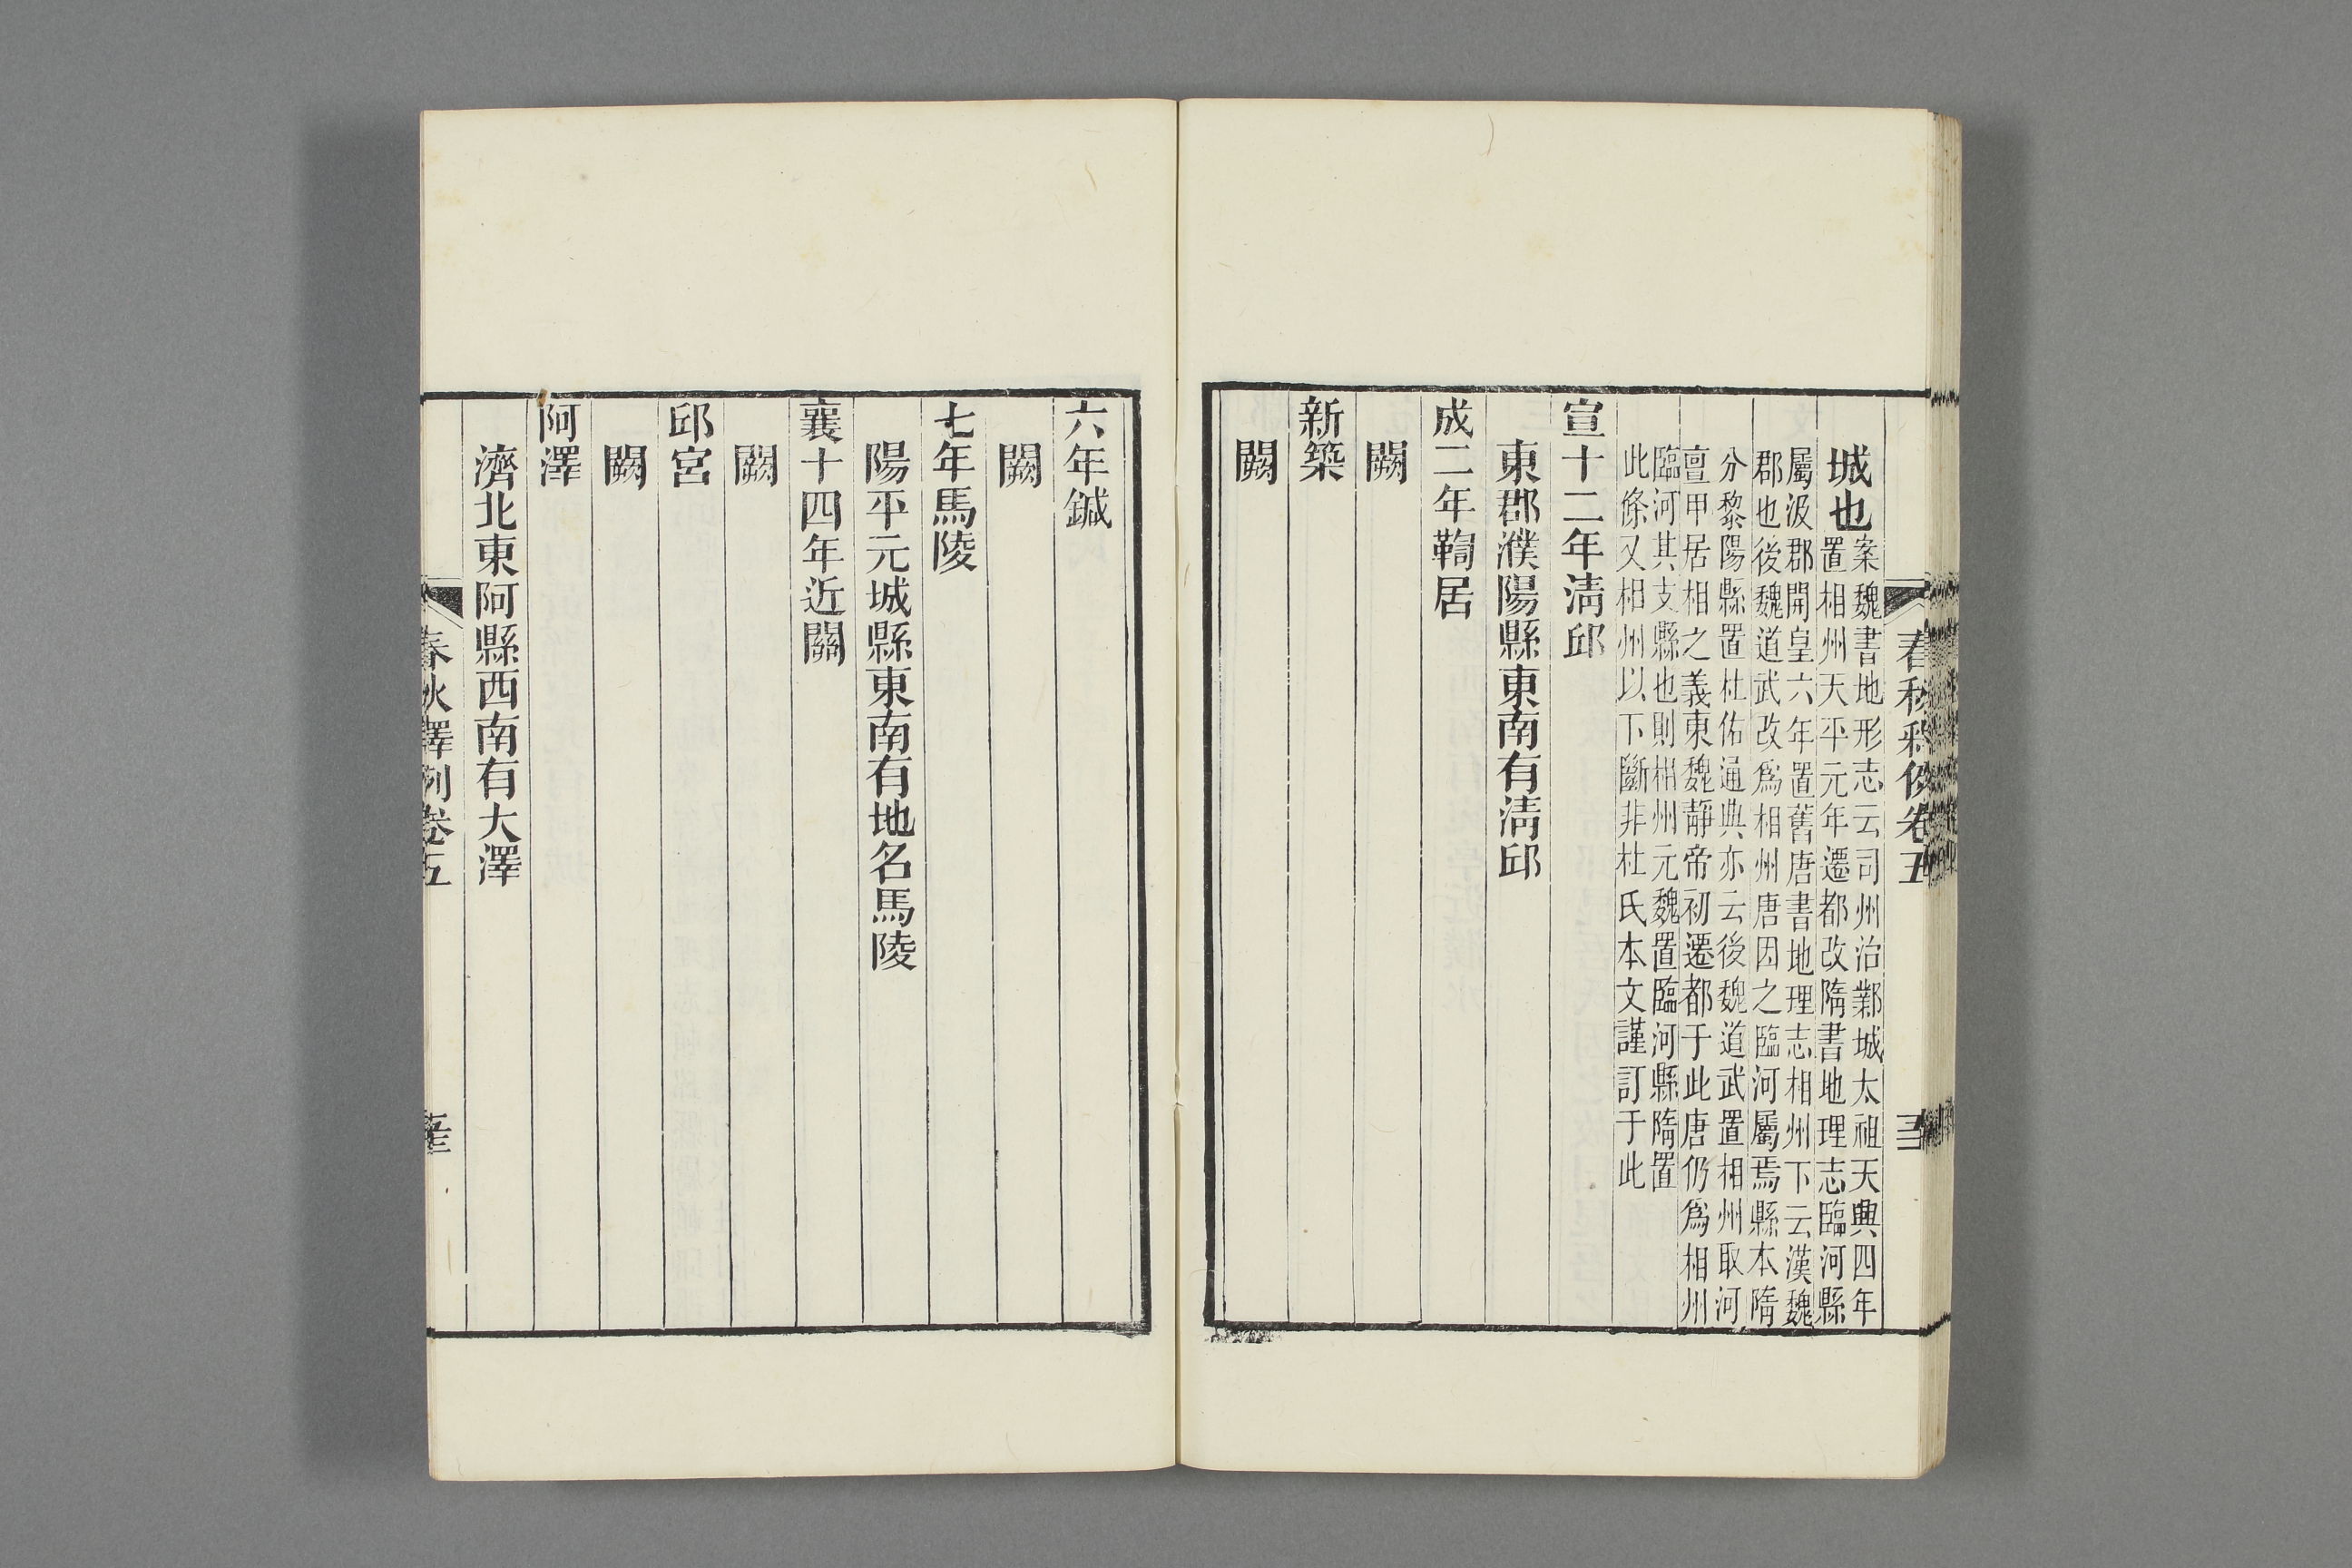 城也案魏書地形志云司州治鄴城太祖天興四年
置相州天平元年遷都改隋書地理志臨河縣
屬汲郡開皇六年置舊唐書地理志相州下云漢魏
郡也後魏道武改爲相州唐因之臨河屬焉縣本隋
分黎陽縣置杜佑通典亦云後魏道武置相州取河
亶甲居相之義東魏靜帝初遷都于此唐仍爲相州
臨河其支縣也則相州元魏置臨河縣隋置
此條又相州以下斷非杜氏本文謹訂于此
宣十二年淸邱
東郡濮陽縣東南有淸邱
成二年鞫居
闕
新築
闕
六年鍼
闕
七年馬陵
陽平元城縣東南有地名馬陵
襄十四年近關
闕
邱宮
闕
阿澤
濟北東阿縣西南有大澤
春秋釋例卷五